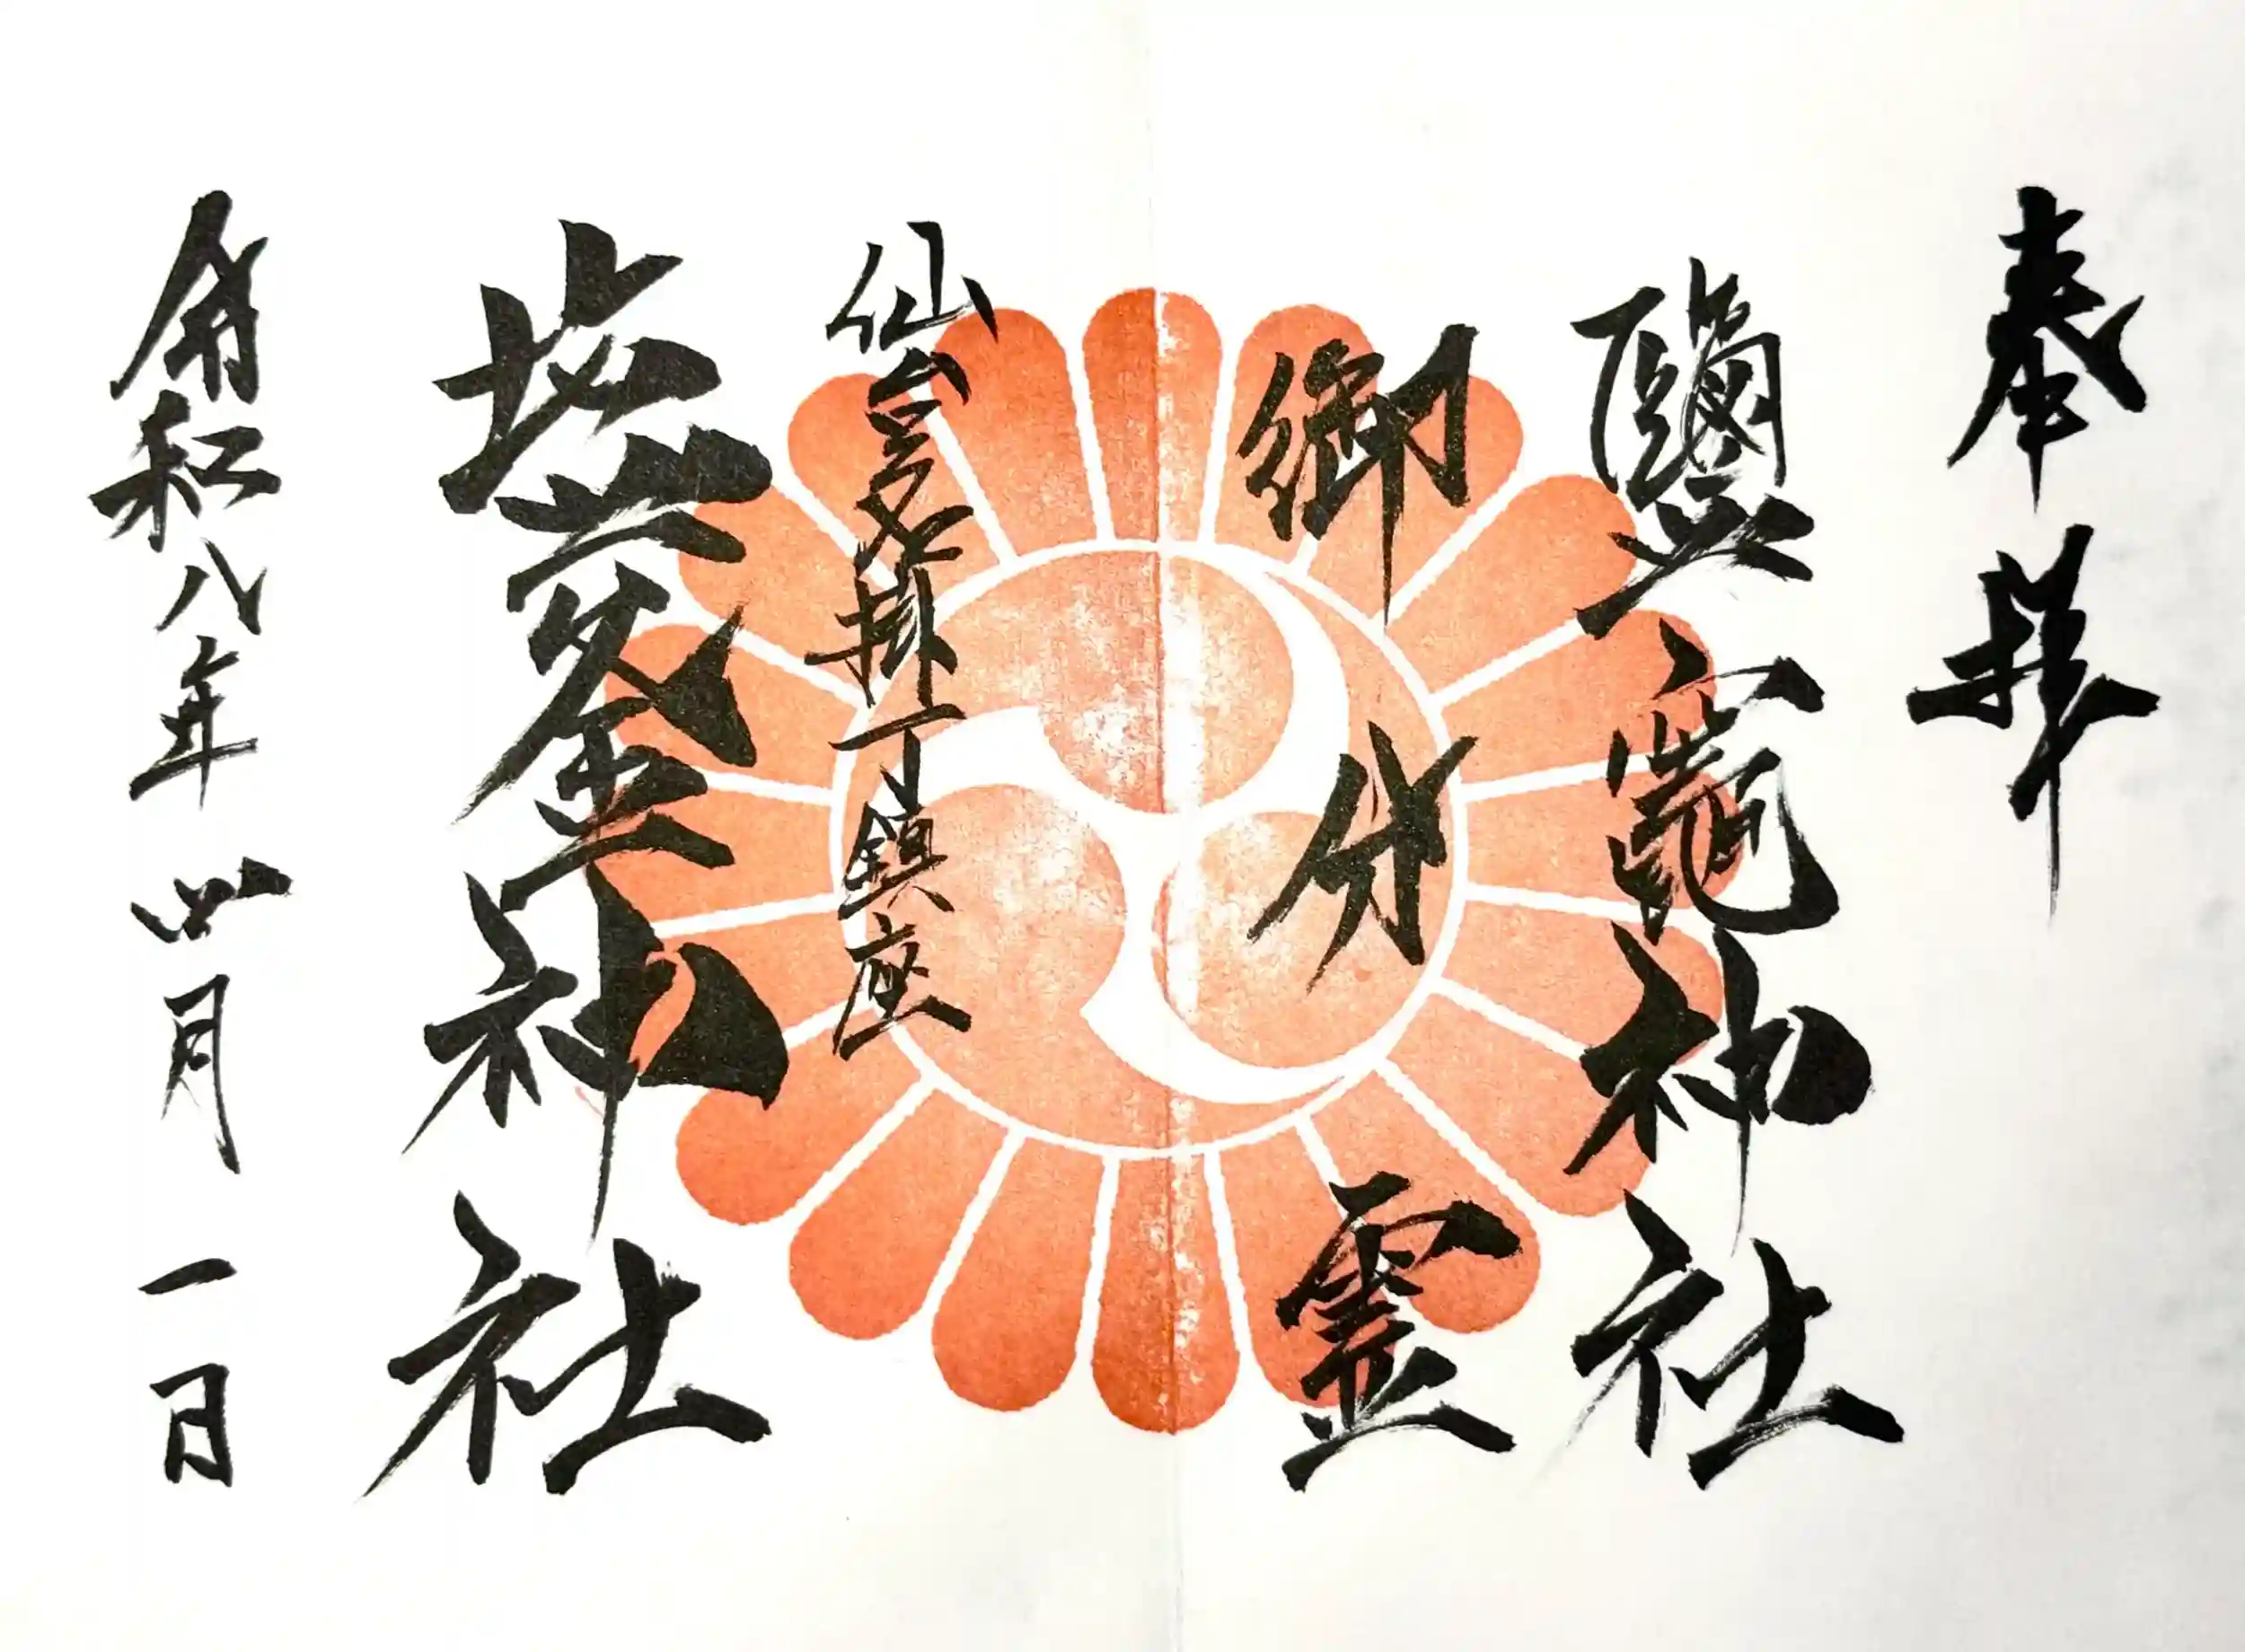 奉拝
鹽竈神社
御分霊
仙台名掛丁鎮座
塩釜神社
令和八年四月一日